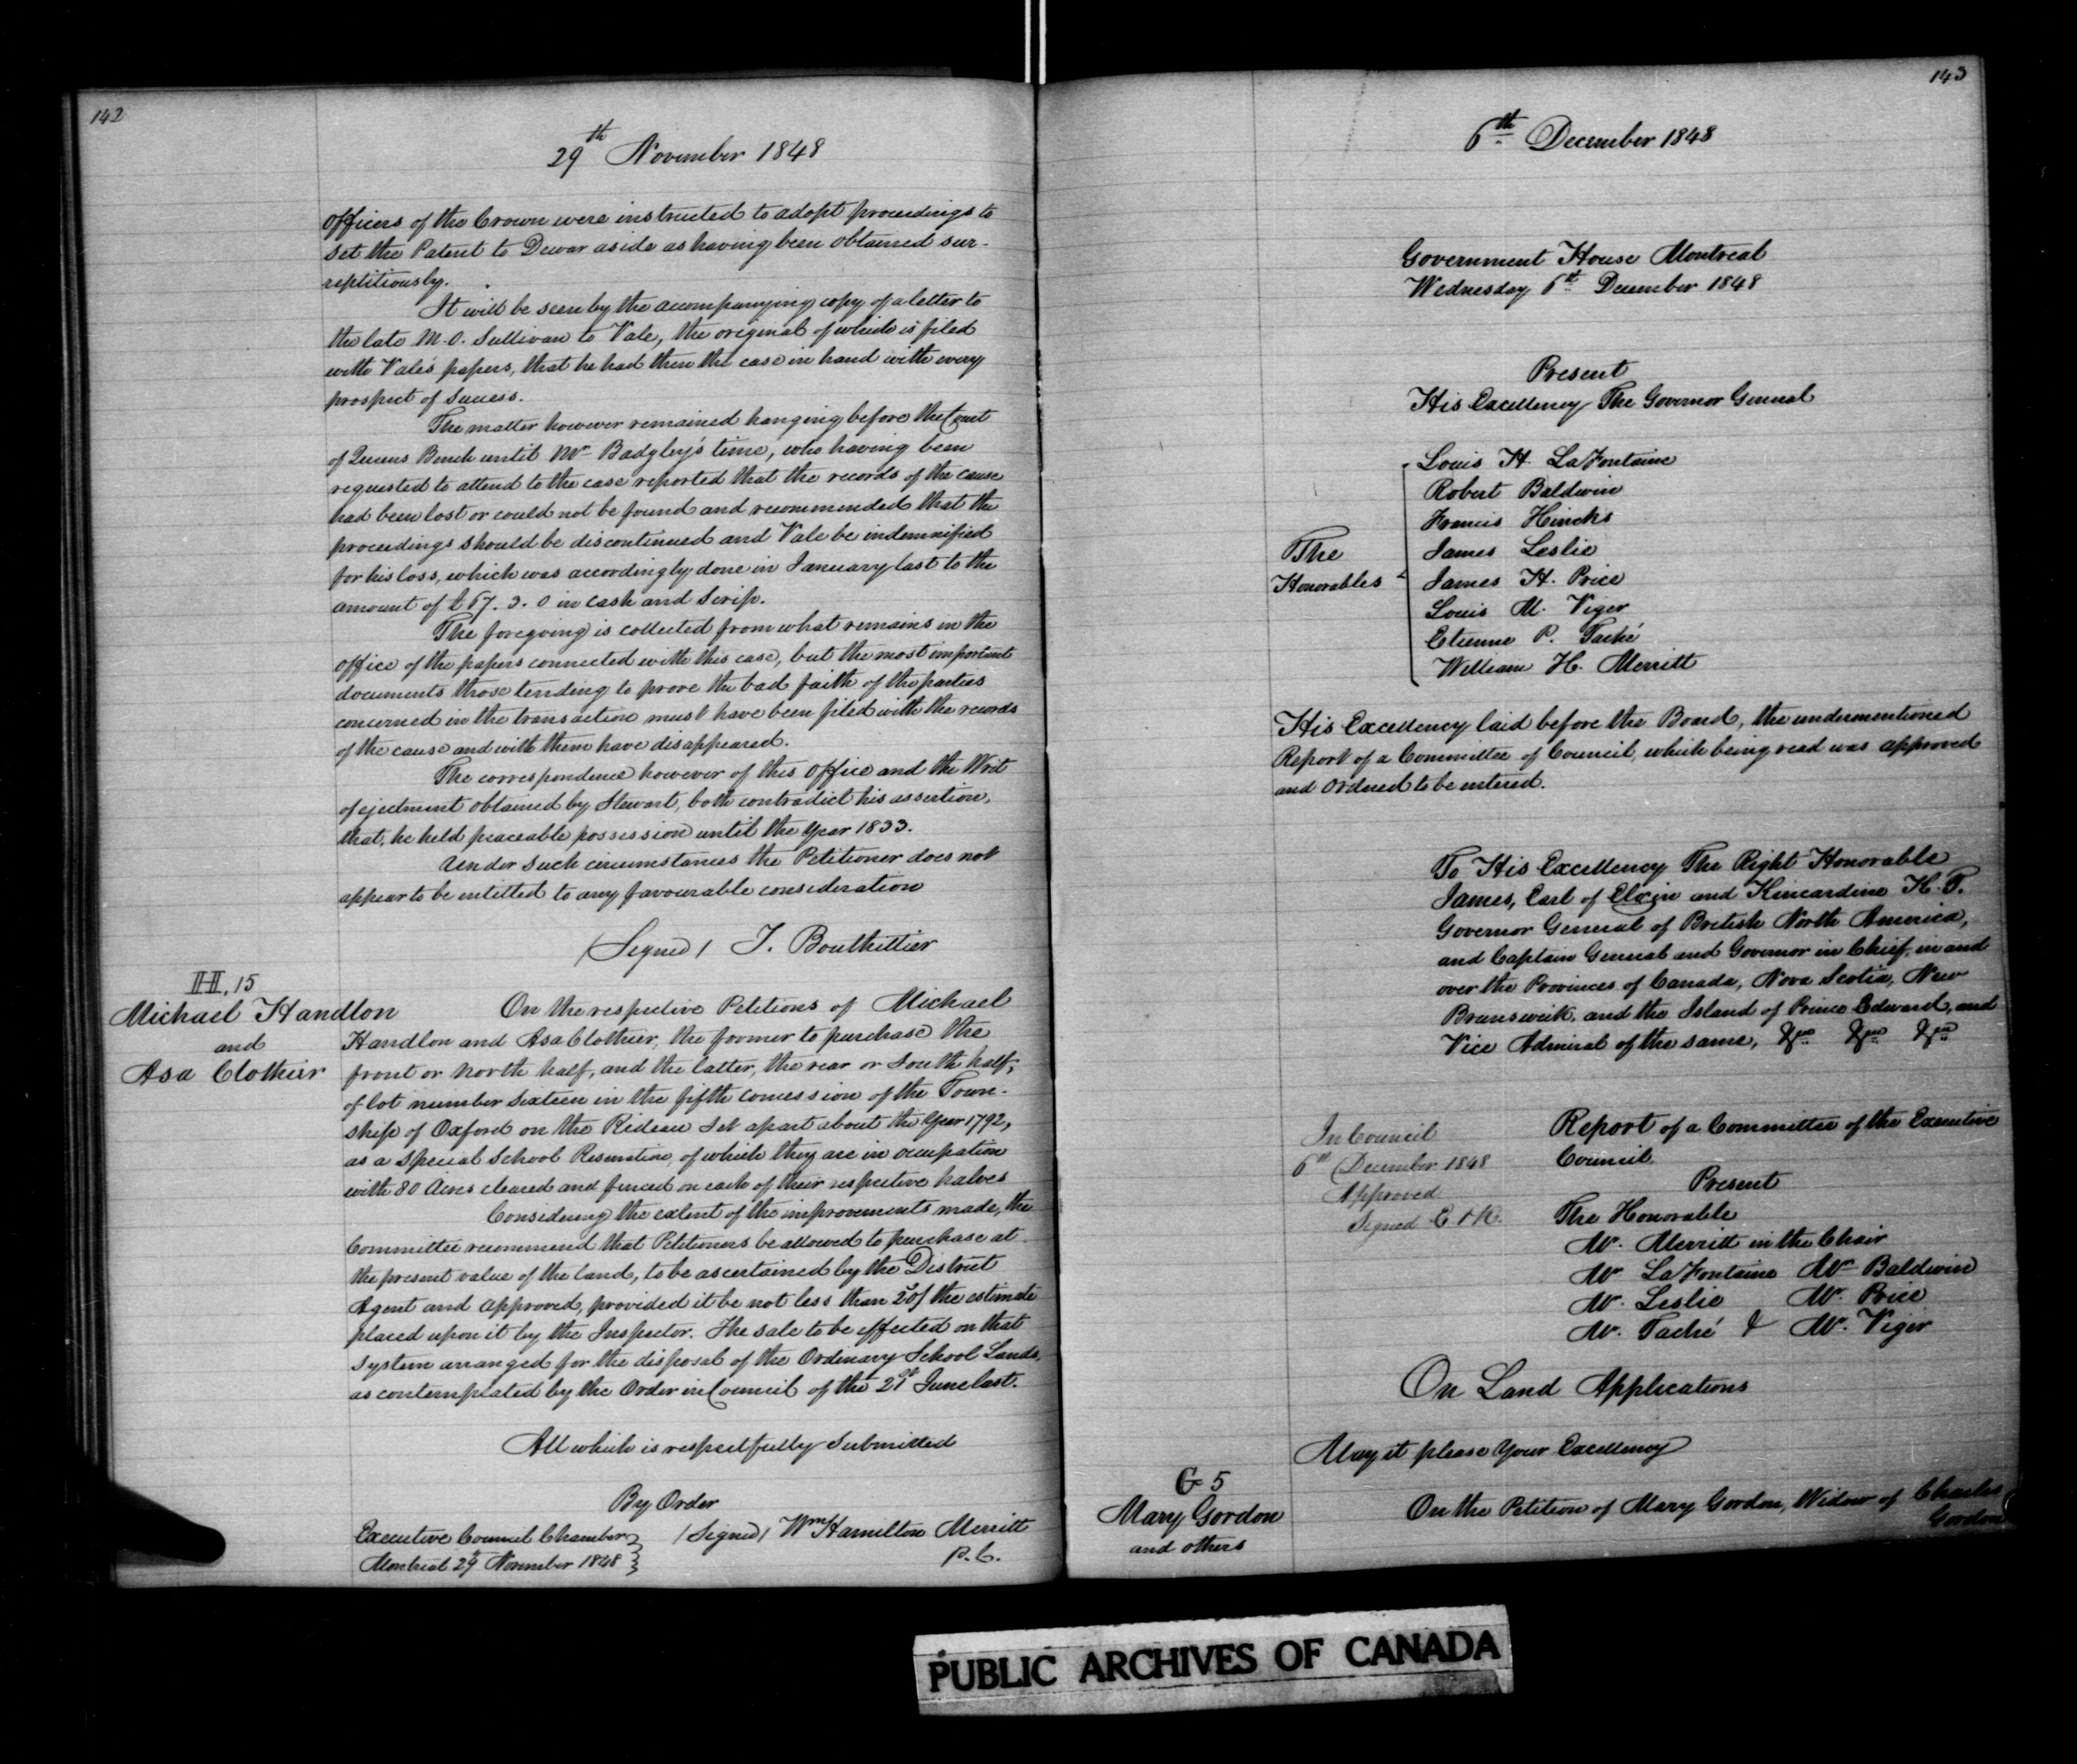 142
29th November 1848
officers of the Crown were instructed to adopt proceedings to
set the Patent to Dewar aside as having been obtained sur-
reptitiously.
It will be seen by the accompanying copy of a letter to
the late M. O. Sullivan to Vale, the original of which is filed
with Vale's papers, that he had then the case in hand with every
prospect of success.
The matter however remained hanging before the Court
of Queens Bench until Mr Badgley's time, who having been
requested to attend to the case reported that the records of the cause
had been lost or could not be found and recommended that the
proceedings should be discontinued and Vale be indemnified
for his loss, which was accordingly done in January last to the
amount of £67. 3. 0 in cash and Scrip.
The foregoing is collected from what remains in the
office of the papers connected with this case, but the most important
documents those tending to prove the bad faith of the parties
concerned in the transaction must have been filed with the records
of the cause and with them have disappeared.
The correspondence however of this office and the Writ
of ejectment obtained by Stewart, both contradict his assertion,
that, he held peaceable possession until the year 1833.
Under such circumstances the Petitioner does not
appear to be intitled to any favourable consideration
(Signed) T. Bouthillier
H. 15
Michael Handlon
and
Asa Clothier
On the respective Petitions of Michael
Handlon and Asa Clothier, the former to purchase the
front or North half, and the latter, the rear or South half,
of lot number Sixteen in the fifth concession of the Town-
ship of Oxford on the Rideau Set apart about the year 1792,
as a Special School Reservation, of which they are in occupation
with 80 Acres cleared and fenced on each of their respective halves
Considering the extent of the improvements made, the
Committee recommend that Petitioners be allowed to purchase at
the present value of the land, to be ascertained by the District
Agent and approved, provided it be not less than 20/ the estimate
placed upon it by the Inspector. The sale to be effected on that
System arranged for the disposal of the Ordinary School Lands,
as contemplated by the Order in Council of the 21st June last.
All which is respectfully Submitted
By Order
Executive Council Chamber
Montreal 29th November 1848
(Signed) Wm Hamilton Merritt
P. C.
143
6th December 1848
Government House Montreal
Wednesday 6th December 1848
Present
His Excellency The Governor General
The
Honorables
Louis H. LaFontaine
Robert Baldwin
Francis Hincks
James Leslie
James H. Price
Louis M. Viger
Etienne P. Taché
William H. Merritt
His Excellency laid before the Board, the undermentioned
Report of a Committee of Council, which being read was approved
and Ordered to be entered.
To His Excellency The Right Honorable
James, Earl of Elgin and Kincardine K. T.
Governor General of British North America,
and Captain General and Governor in Chief, in and
over the Provinces of Canada, Nova Scotia, New
Brunswick, and the Island of Prince Edward, and
Vice Admiral of the same, &ca &ca &ca
In Council
6th December 1848
Approved
Signed E & K.
Report of a Committee of the Executive
Council.
Present
The Honorable
Mr. Merritt in the Chair
Mr LaFontaine Mr Baldwin
Mr. Leslie Mr. Price
Mr. Taché & Mr. Viger
On Land Applications
May it please Your Excellency
G 5
Mary Gordon
and others
On the Petition of Mary Gordon, Widow of Charles
Gordon
PUBLIC ARCHIVES OF CANADA